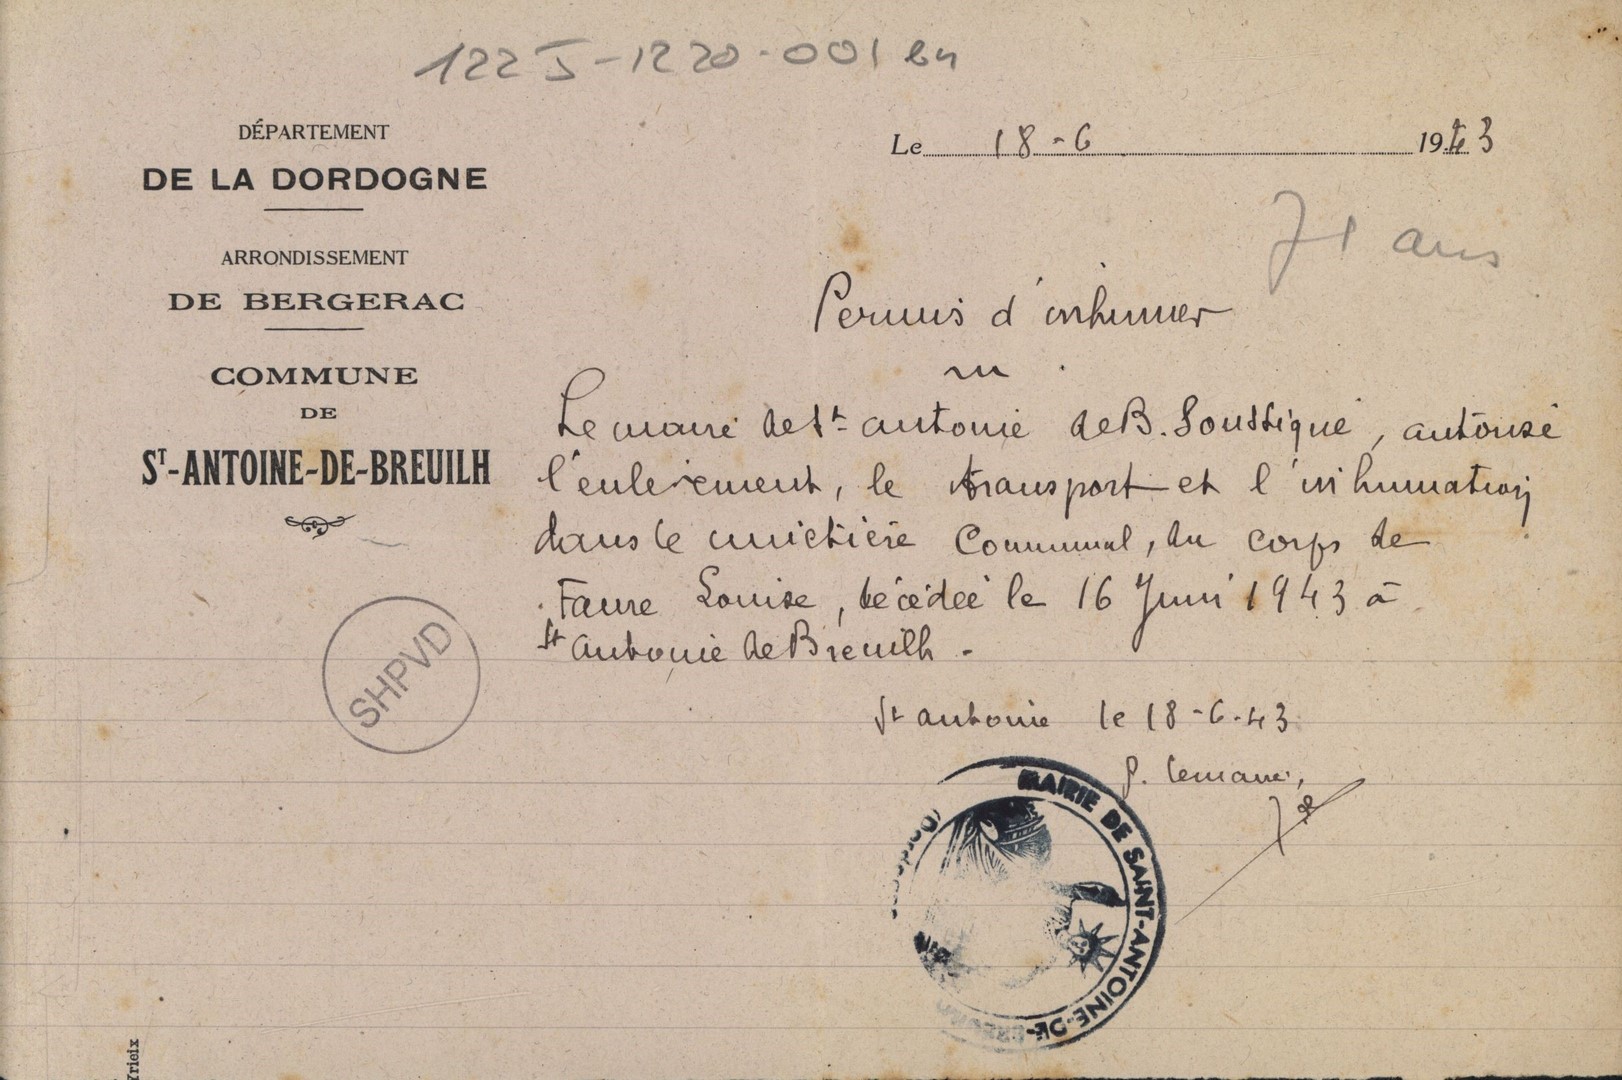 122 J-1220-001 bis
DÉPARTEMENT
DE LA DORDOGNE
ARRONDISSEMENT
DE BERGERAC
COMMUNE
DE
St-ANTOINE-DE-BREUILH
SHPVD
Le 18-6 1943
71 ans
Permis d'inhumer
Le maire de St-antoine de B. Soussigné, autorise
l'enlevement, le transport et l'inhumation
dans le cimetière Communal, du corps de
Faure Louise, décédée le 16 Juin 1943 à
St antoine de Breuilh.
St antoine le 18-6-43
P. le maire,
MAIRIE DE SAINT-ANTOINE-DE-BREUILH
(Dordogne)
Yrieix